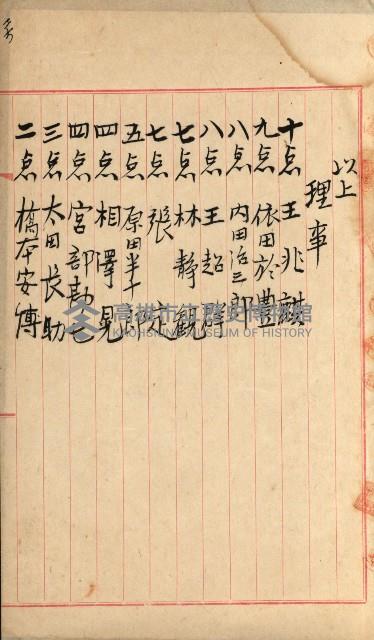 以上
理事
十点 王兆麒
九点 依田於豊
八点 内田治三郎
八点 王超群
七点 林静観
七点 張
五点 原田半十郎
四点 相澤晃
四点 宮部勘七
三点 太田長助
二点 橋本安博
高雄市立歷史博物館
KAOHSIUNG MUSEUM OF HISTORY